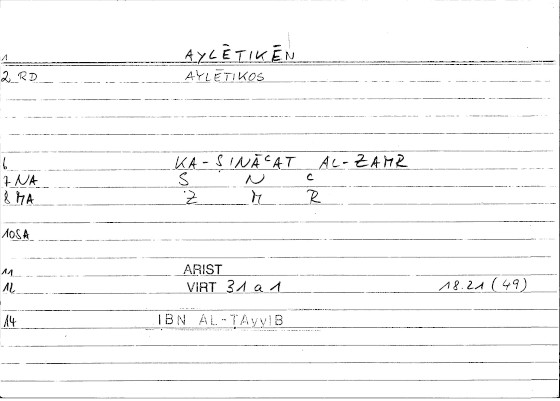 1 AYLĒTIKĒN
2 RD AYLĒTIKOS
6 KA-ṢINĀCAT AL-ZAMR
7 NA Ṣ N C
8 MA Z M R
10SA
11 ARIST
12 VIRT 31 a 1 18.21 (49)
14 IBN AL-ṬAyyIB